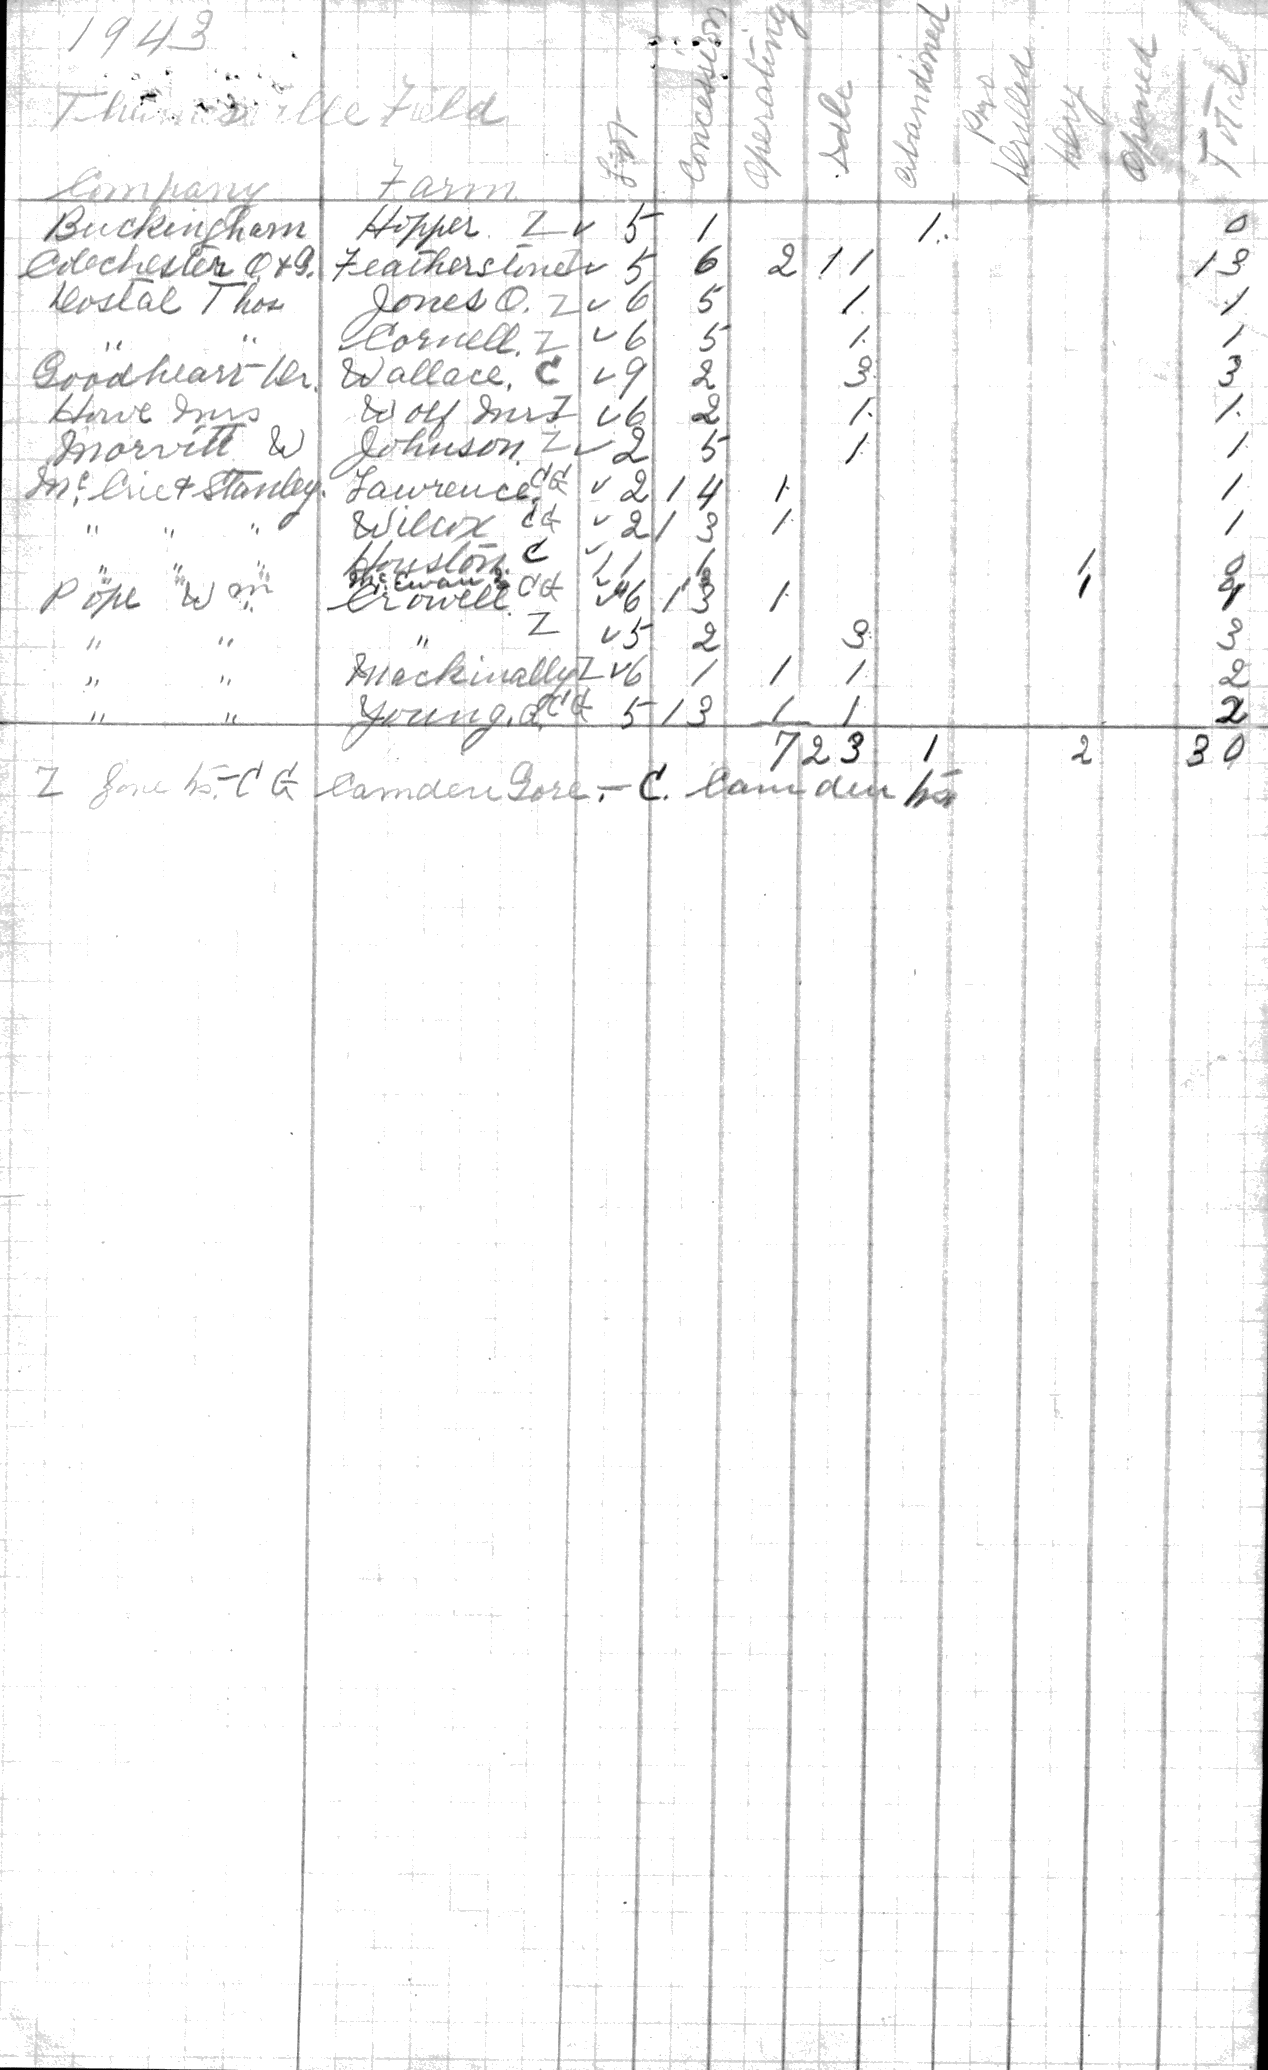 1943
Thamesville Field
Company Farm Lot Concession Operating Idle Abandoned Pros Drilled Dry Opened Total
Buckingham Hopper. Z ✓ 5 1 1. 0
Colchester O.&G. Featherstone Z ✓ 5 6 2 11 13
Dostal Thos Jones O. Z ✓ 6 5 1. 1
" " Cornell. Z ✓ 6 5 1. 1
Goodheart Dr. Wallace. C ✓ 9 2 3 3
Howe Mrs Wolf Mrs Z ✓ 6 2 1. 1.
Morvitt W Johnson. Z ✓ 2 5 1 1
Mc. & Stanley. Lawrence. CG ✓ 2 14 1. 1
" " " Wilcox CG ✓ 2 13 1. 1
" " " Houston. C ✓ 11 1 1 0
Mc Ewan
Pope Wm Crowell. CG ✓ 6 13 1. 1
" " " Z ✓ 5 2 3 3
" " Mackinally Z ✓ 6 1 1 1 2
" " Young. CG 5 13 1 1 2
7 23 1 2 30
Z Zone Ts.- CG Camden Gore.- C. Camden Ts